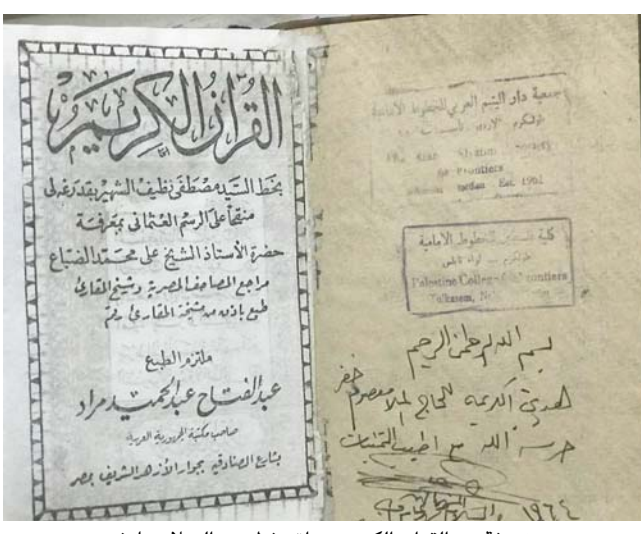 القرآن الكريم
بخط السيد مصطفى نظيف الشهير بقدرغه لى
منقحا على الرسم العثمانى بمعرفة
حضرة الأستاذ الشيخ على محمد الضباع
مراجع المصاحف المصرية وشيخ المقارئ
طبع باذن من مشيخة المقارئ رقم
ملتزم الطبع
عبد الفتاح عبد الحميد مراد
صاحب مكتبة الجمهورية العربية
بشارع الصنادقية بجوار الأزهر الشريف بمصر
جمعية دار اليتيم العربي للخطوط الأمامية
طولكرم الاردن
for Frontiers
Jordan Est. 1961
كلية فلسطين للخطوط الامامية
طولكرم لواء نابلس
Palestine College Frontiers
Tulkarem,
بسم الله الرحمن الرحيم
خضر
هدية الكريمه للحاج معصوم
حرسه الله مع اطيب التمنيات
١٩٦٤